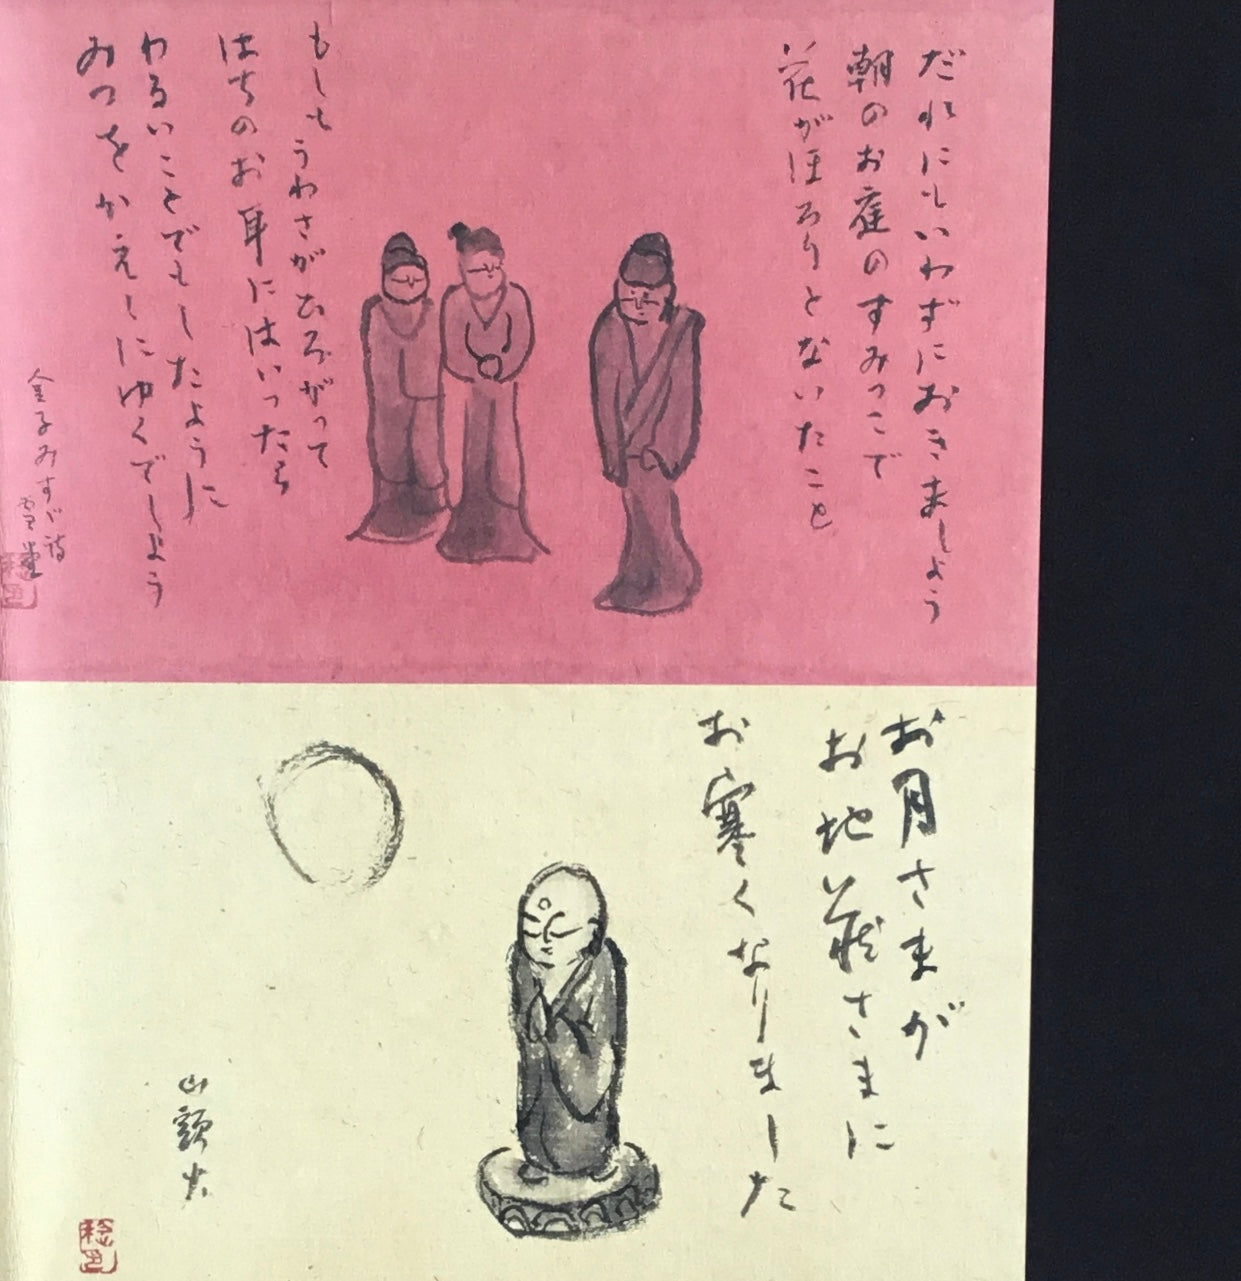 だれにもいわずにおきましょう
朝のお庭のすみっこで
花がほろりとないたこと
もしもうわさがひろがって
はちのお耳にはいったら
わるいことでもしたように
みつをかえしにゆくでしょう
金子みすゞ詩
お月さまが
お地蔵さまに
お寒くなりました
山頭火